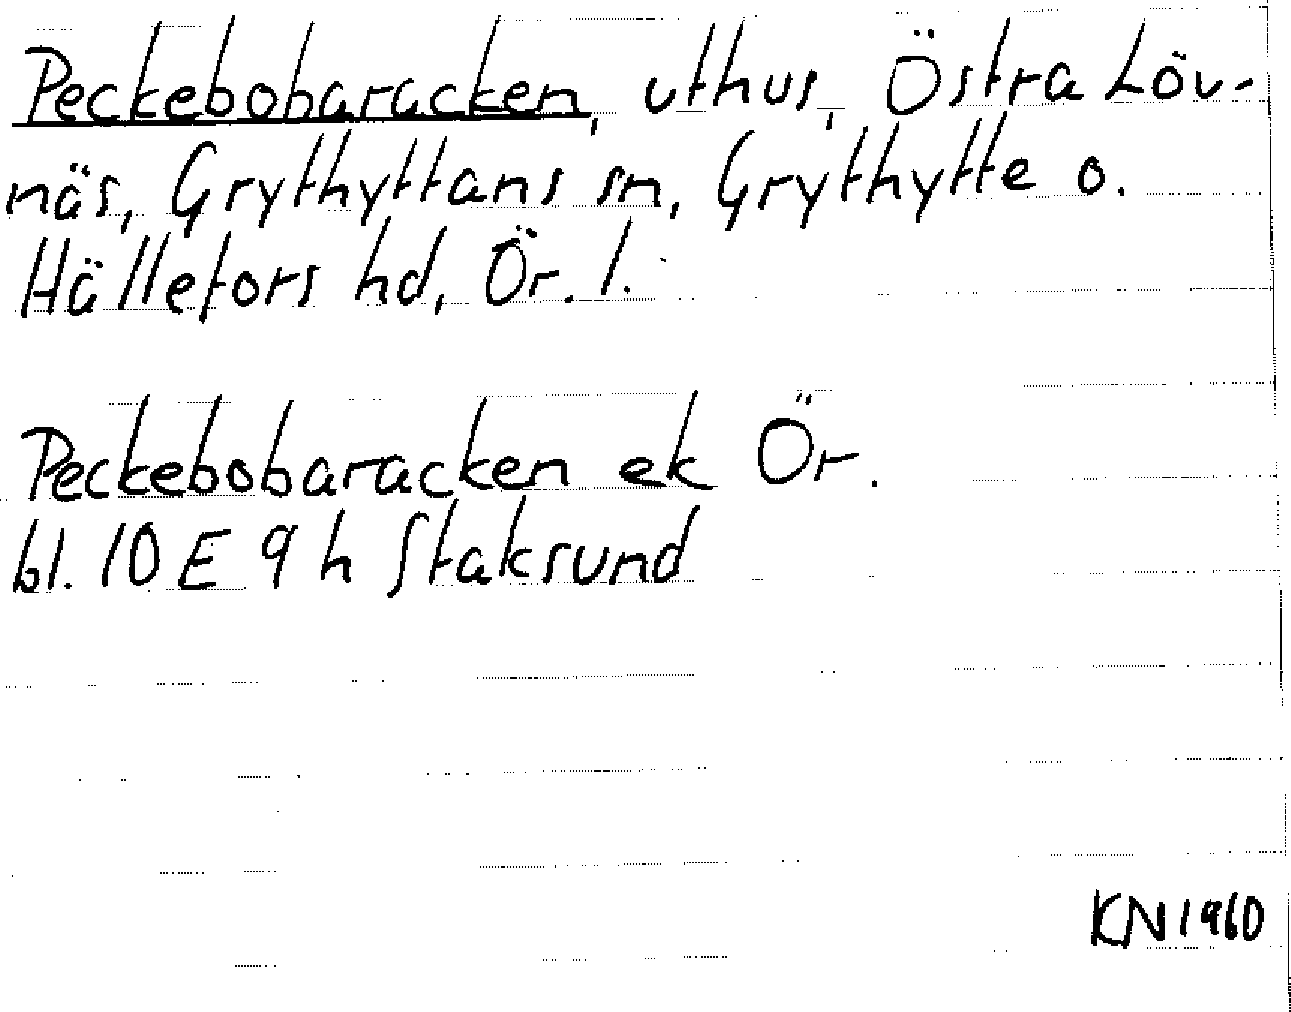 Peckebobaracken, uthus, Östra Löv-
näs, Grythyttans sn, Grythytte o.
Hällefors hd, Ör. l.
Peckebobaracken ek Ör.
bl. 10 E 9 h Staksund
KN 1960